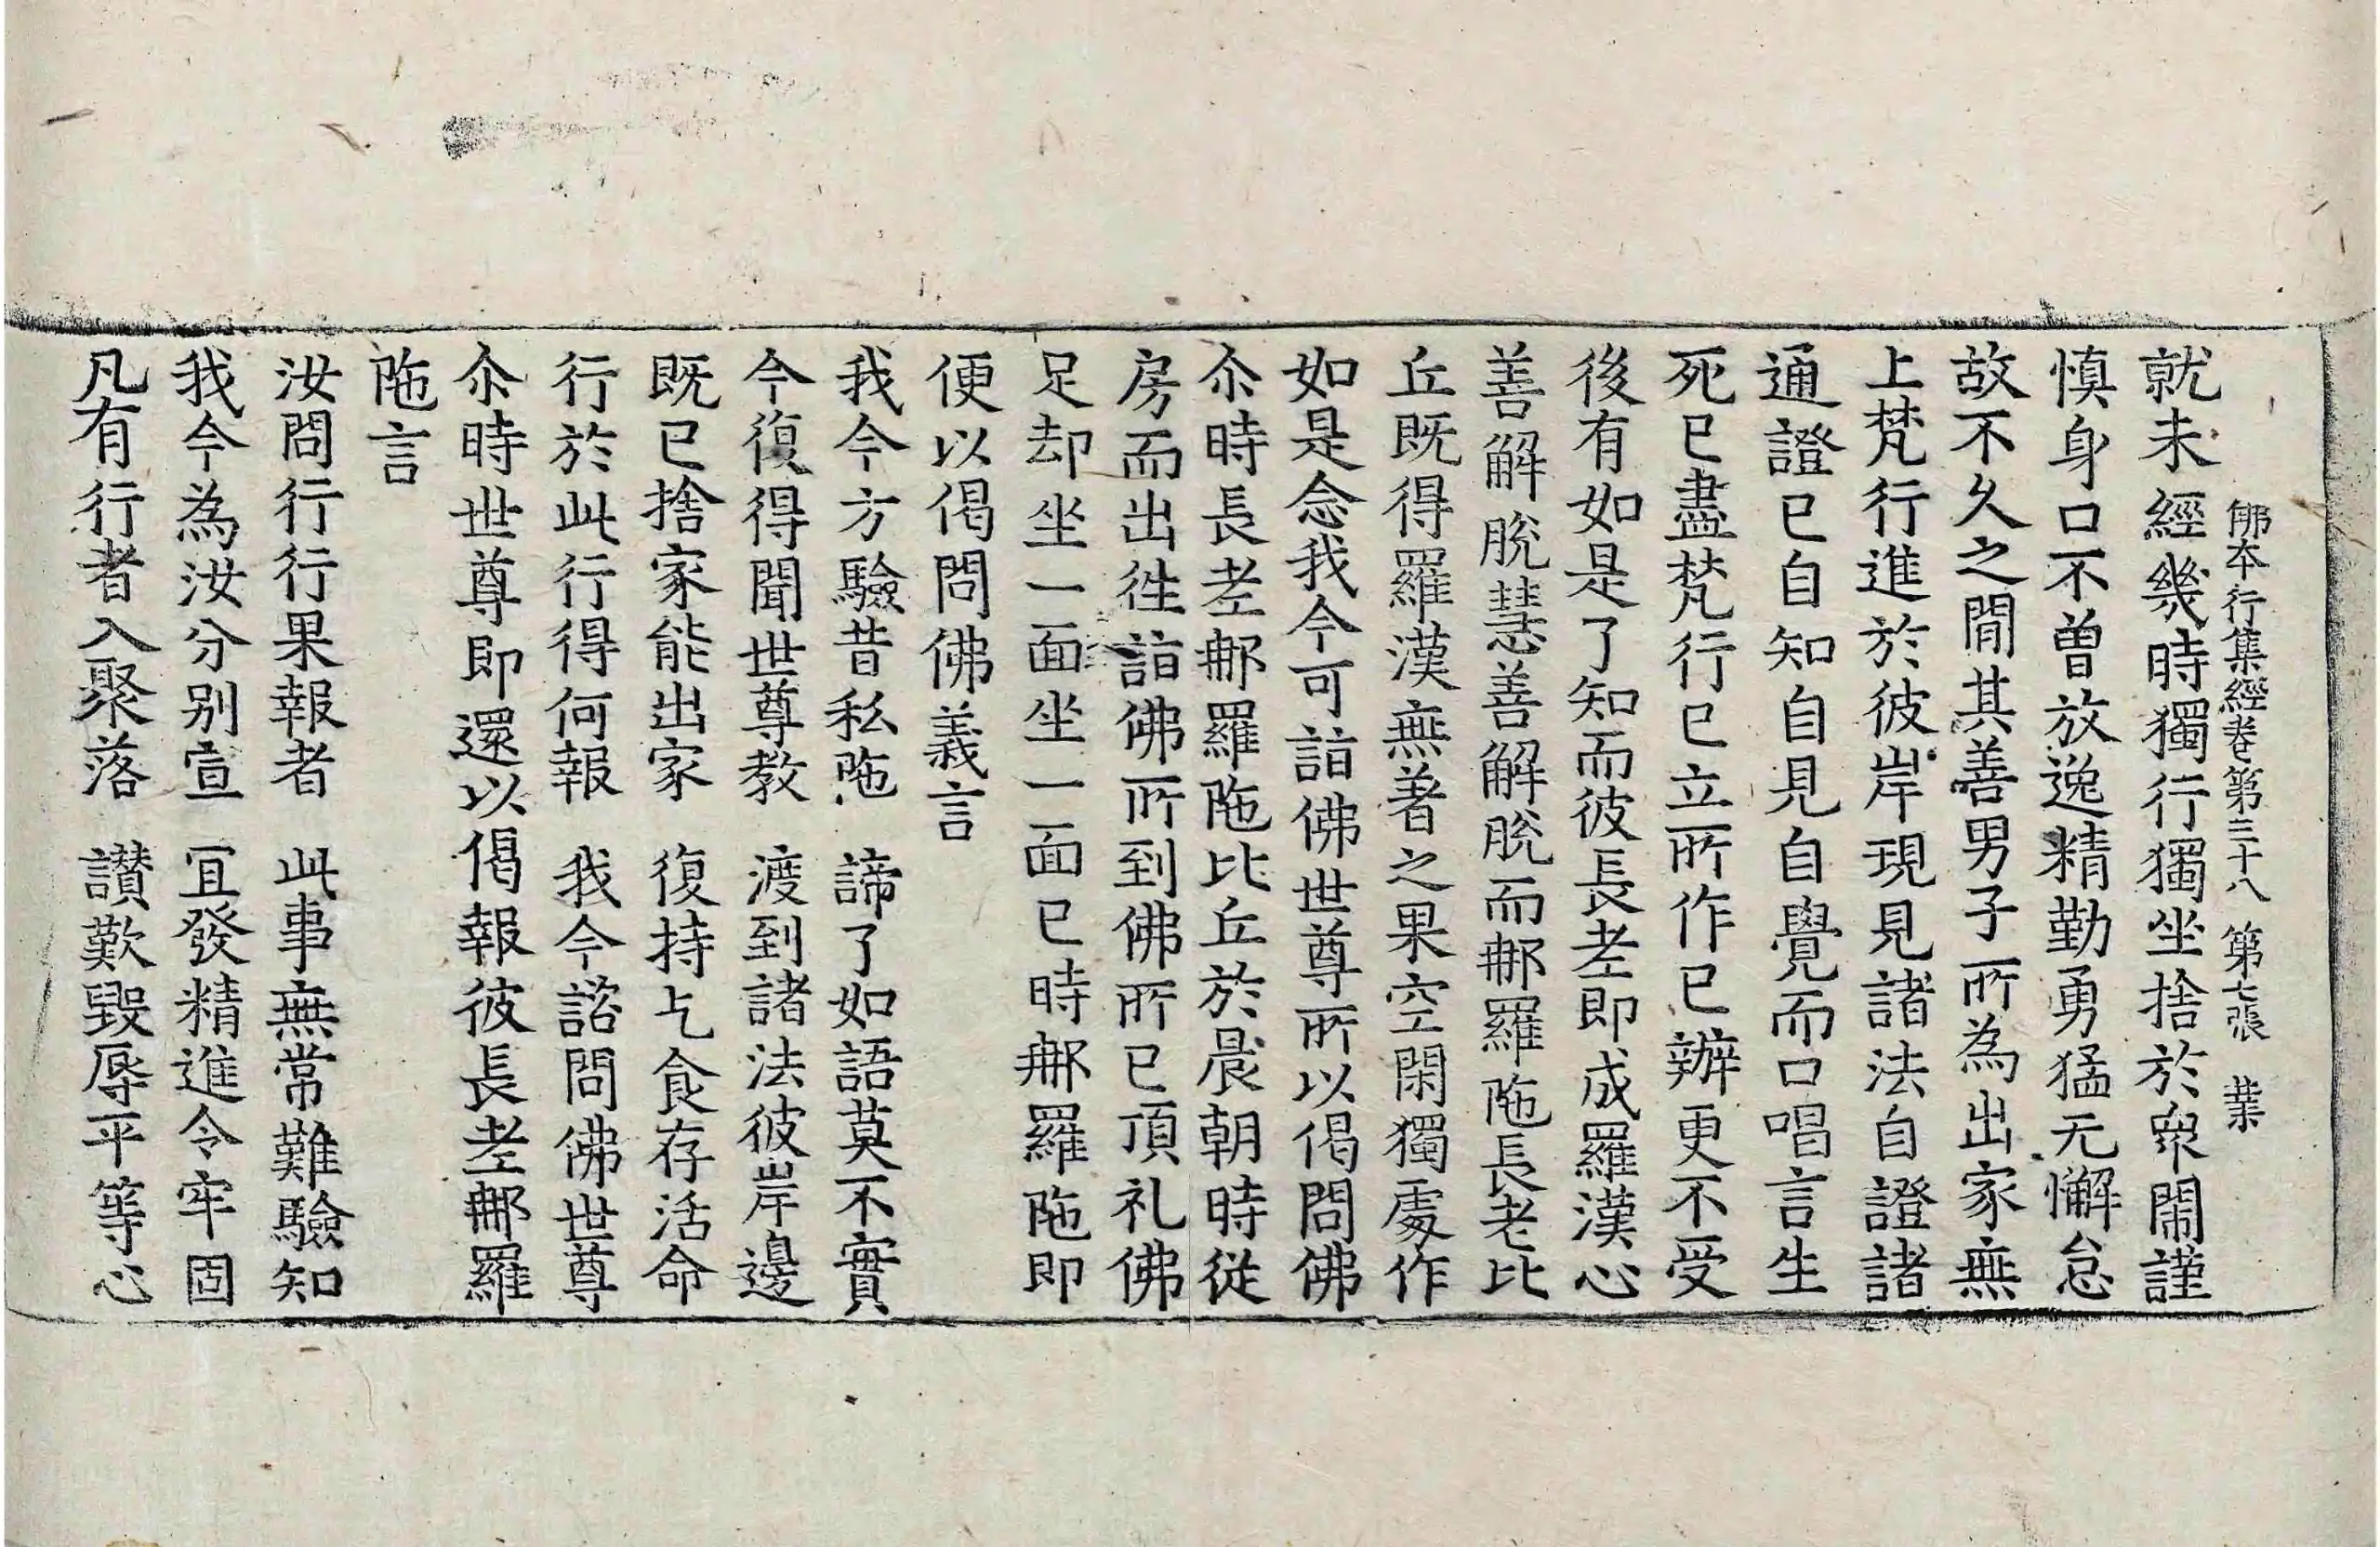 佛本行集經卷第三十八　第七張　業
就未經幾時獨行獨坐捨於衆閙謹
慎身口不曾放逸精勤勇猛无懈怠
故不久之閒其善男子所為出家無
上梵行進於彼岸現見諸法自證諸
通證已自知自見自覺而口唱言生
死已盡梵行已立所作已辦更不受
後有如是了知而彼長老即成羅漢心
善解脫慧善解脫而那羅陁長老比
丘既得羅漢無著之果空閑獨處作
如是念我今可詣佛世尊所以偈問佛
尒時長老那羅陁比丘於晨朝時從
房而出往詣佛所到佛所已頂礼佛
足却坐一面坐一面已時那羅陁即
便以偈問佛義言
我今方驗昔私陁　諦了如語莫不實
今復得聞世尊教　渡到諸法彼岸邊
既已捨家能出家　復持乞食存活命
行於此行得何報　我今諮問佛世尊
尒時世尊即還以偈報彼長老那羅
陁言
汝問行行果報者　此事無常難驗知
我今為汝分別宣　冝發精進令牢固
凡有行者入聚落　讃歎毀辱平等心